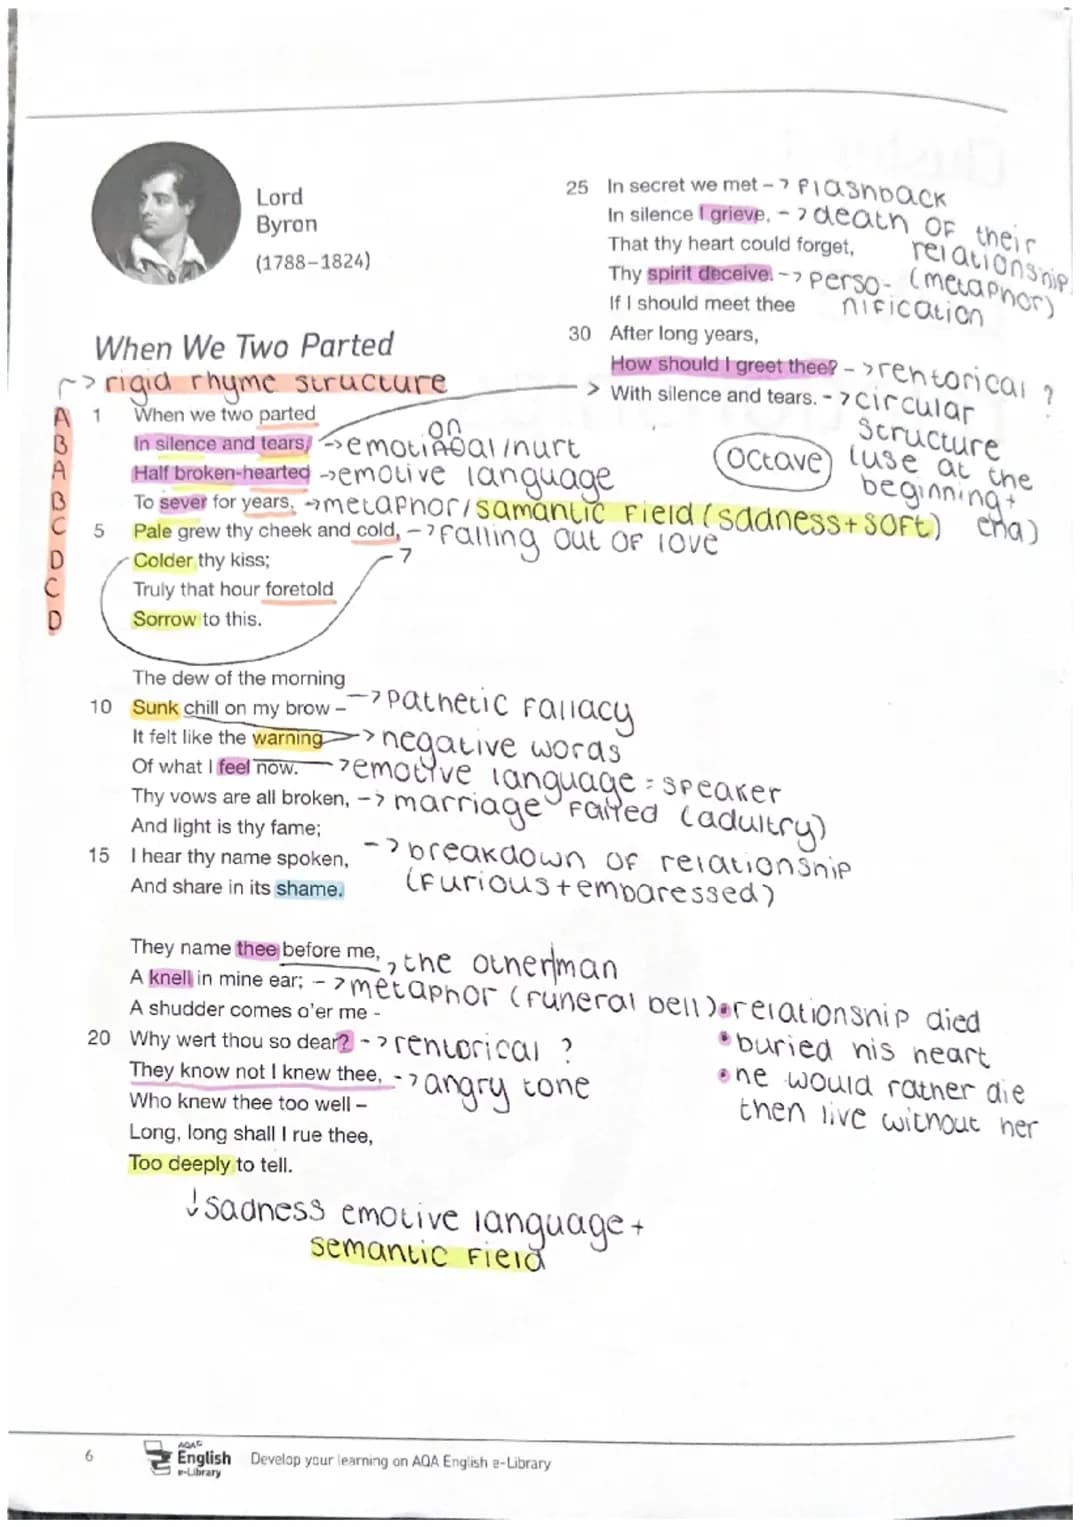 Lord
Byron
(1788–1824)
When We Two Parted
-> rigid rhyme structure
A 1 When we two parted
B In silence and tears, -> emotional/hurt
A Half broken-hearted -> emotive language
B To sever for years, -> metaphor/samantic field (sadness + soft)
C 5 Pale grew thy cheek and cold, -> falling out of love
D Colder thy kiss;
C Truly that hour foretold
D Sorrow to this.
The dew of the morning
10 Sunk chill on my brow – -> pathetic fallacy
It felt like the warning -> negative words
Of what I feel now. -> emotive language = speaker
Thy vows are all broken, -> marriage failed (adultry)
And light is thy fame;
15 I hear thy name spoken, -> breakdown of relationship
And share in its shame. (furious + embaressed)
They name thee before me, -> the other man
A knell in mine ear; -> metaphor (funeral bell) • relationship died
A shudder comes o'er me -
• buried his heart
20 Why wert thou so dear? -> rehtorical ?
• he would rather die
then live without her
They know not I knew thee, -> angry tone
Who knew thee too well –
Long, long shall I rue thee,
Too deeply to tell.
↓ sadness emotive language +
semantic field
25 In secret we met -> flashback
In silence I grieve, -> death of their
relationship
(metaphor)
That thy heart could forget,
Thy spirit deceive. -> perso-
nification
If I should meet thee
30 After long years,
How should I greet thee? -> rehtorical ?
> With silence and tears. -> circular
structure
(use at the
beginning +
end)
octave
6
AQA
English
e-Library
Develop your learning on AQA English e-Library